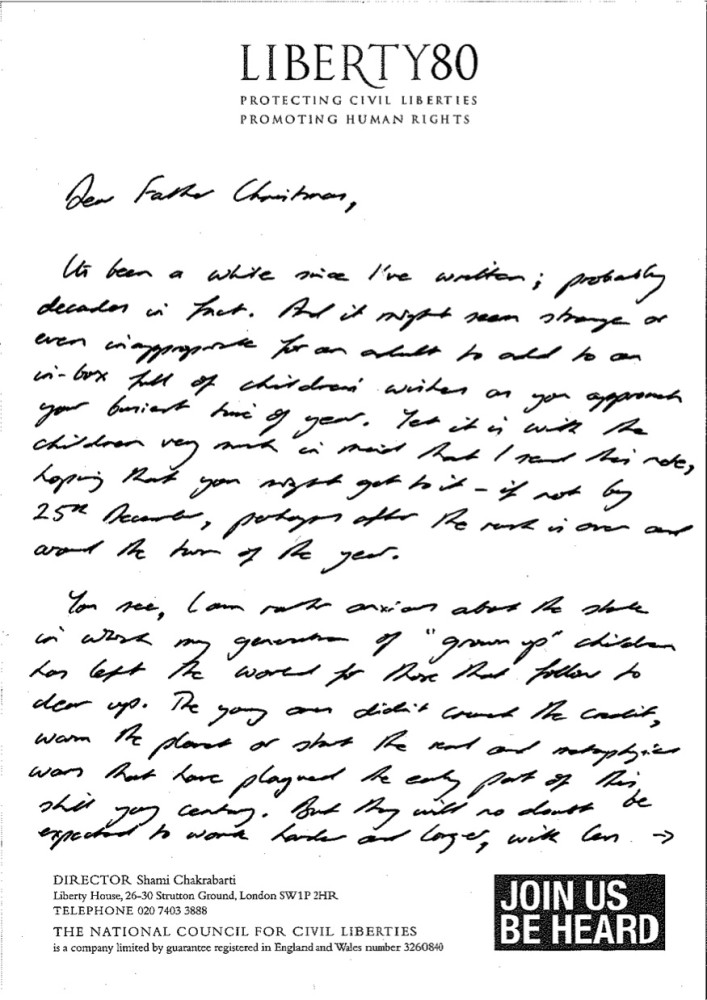 LIBERTY80
PROTECTING CIVIL LIBERTIES
PROMOTING HUMAN RIGHTS
Dear Father Christmas,
It's been a while since I've written; probably
decades in fact. And it might seem strange or
even inappropriate for an adult to add to an
in-box full of children's wishes as you approach
your busiest time of year. Yet it is with the
children very much in mind that I send this note,
hoping that you might get to it – if not by
25th December, perhaps after the rush is over and
around the turn of the year.
You see, I am rather anxious about the state
in which my generation of "grown up" children
has left the world for those that follow to
clear up. The young ones didn't crunch the credit,
warm the planet or start the real and metaphysical
wars that have plagued the early part of this
still young century. But they will no doubt be
expected to work harder and longer, with less →
DIRECTOR Shami Chakrabarti
Liberty House, 26-30 Strutton Ground, London SW1P 2HR
TELEPHONE 020 7403 3888
THE NATIONAL COUNCIL FOR CIVIL LIBERTIES
is a company limited by guarantee registered in England and Wales number 3260840
JOIN US
BE HEARD